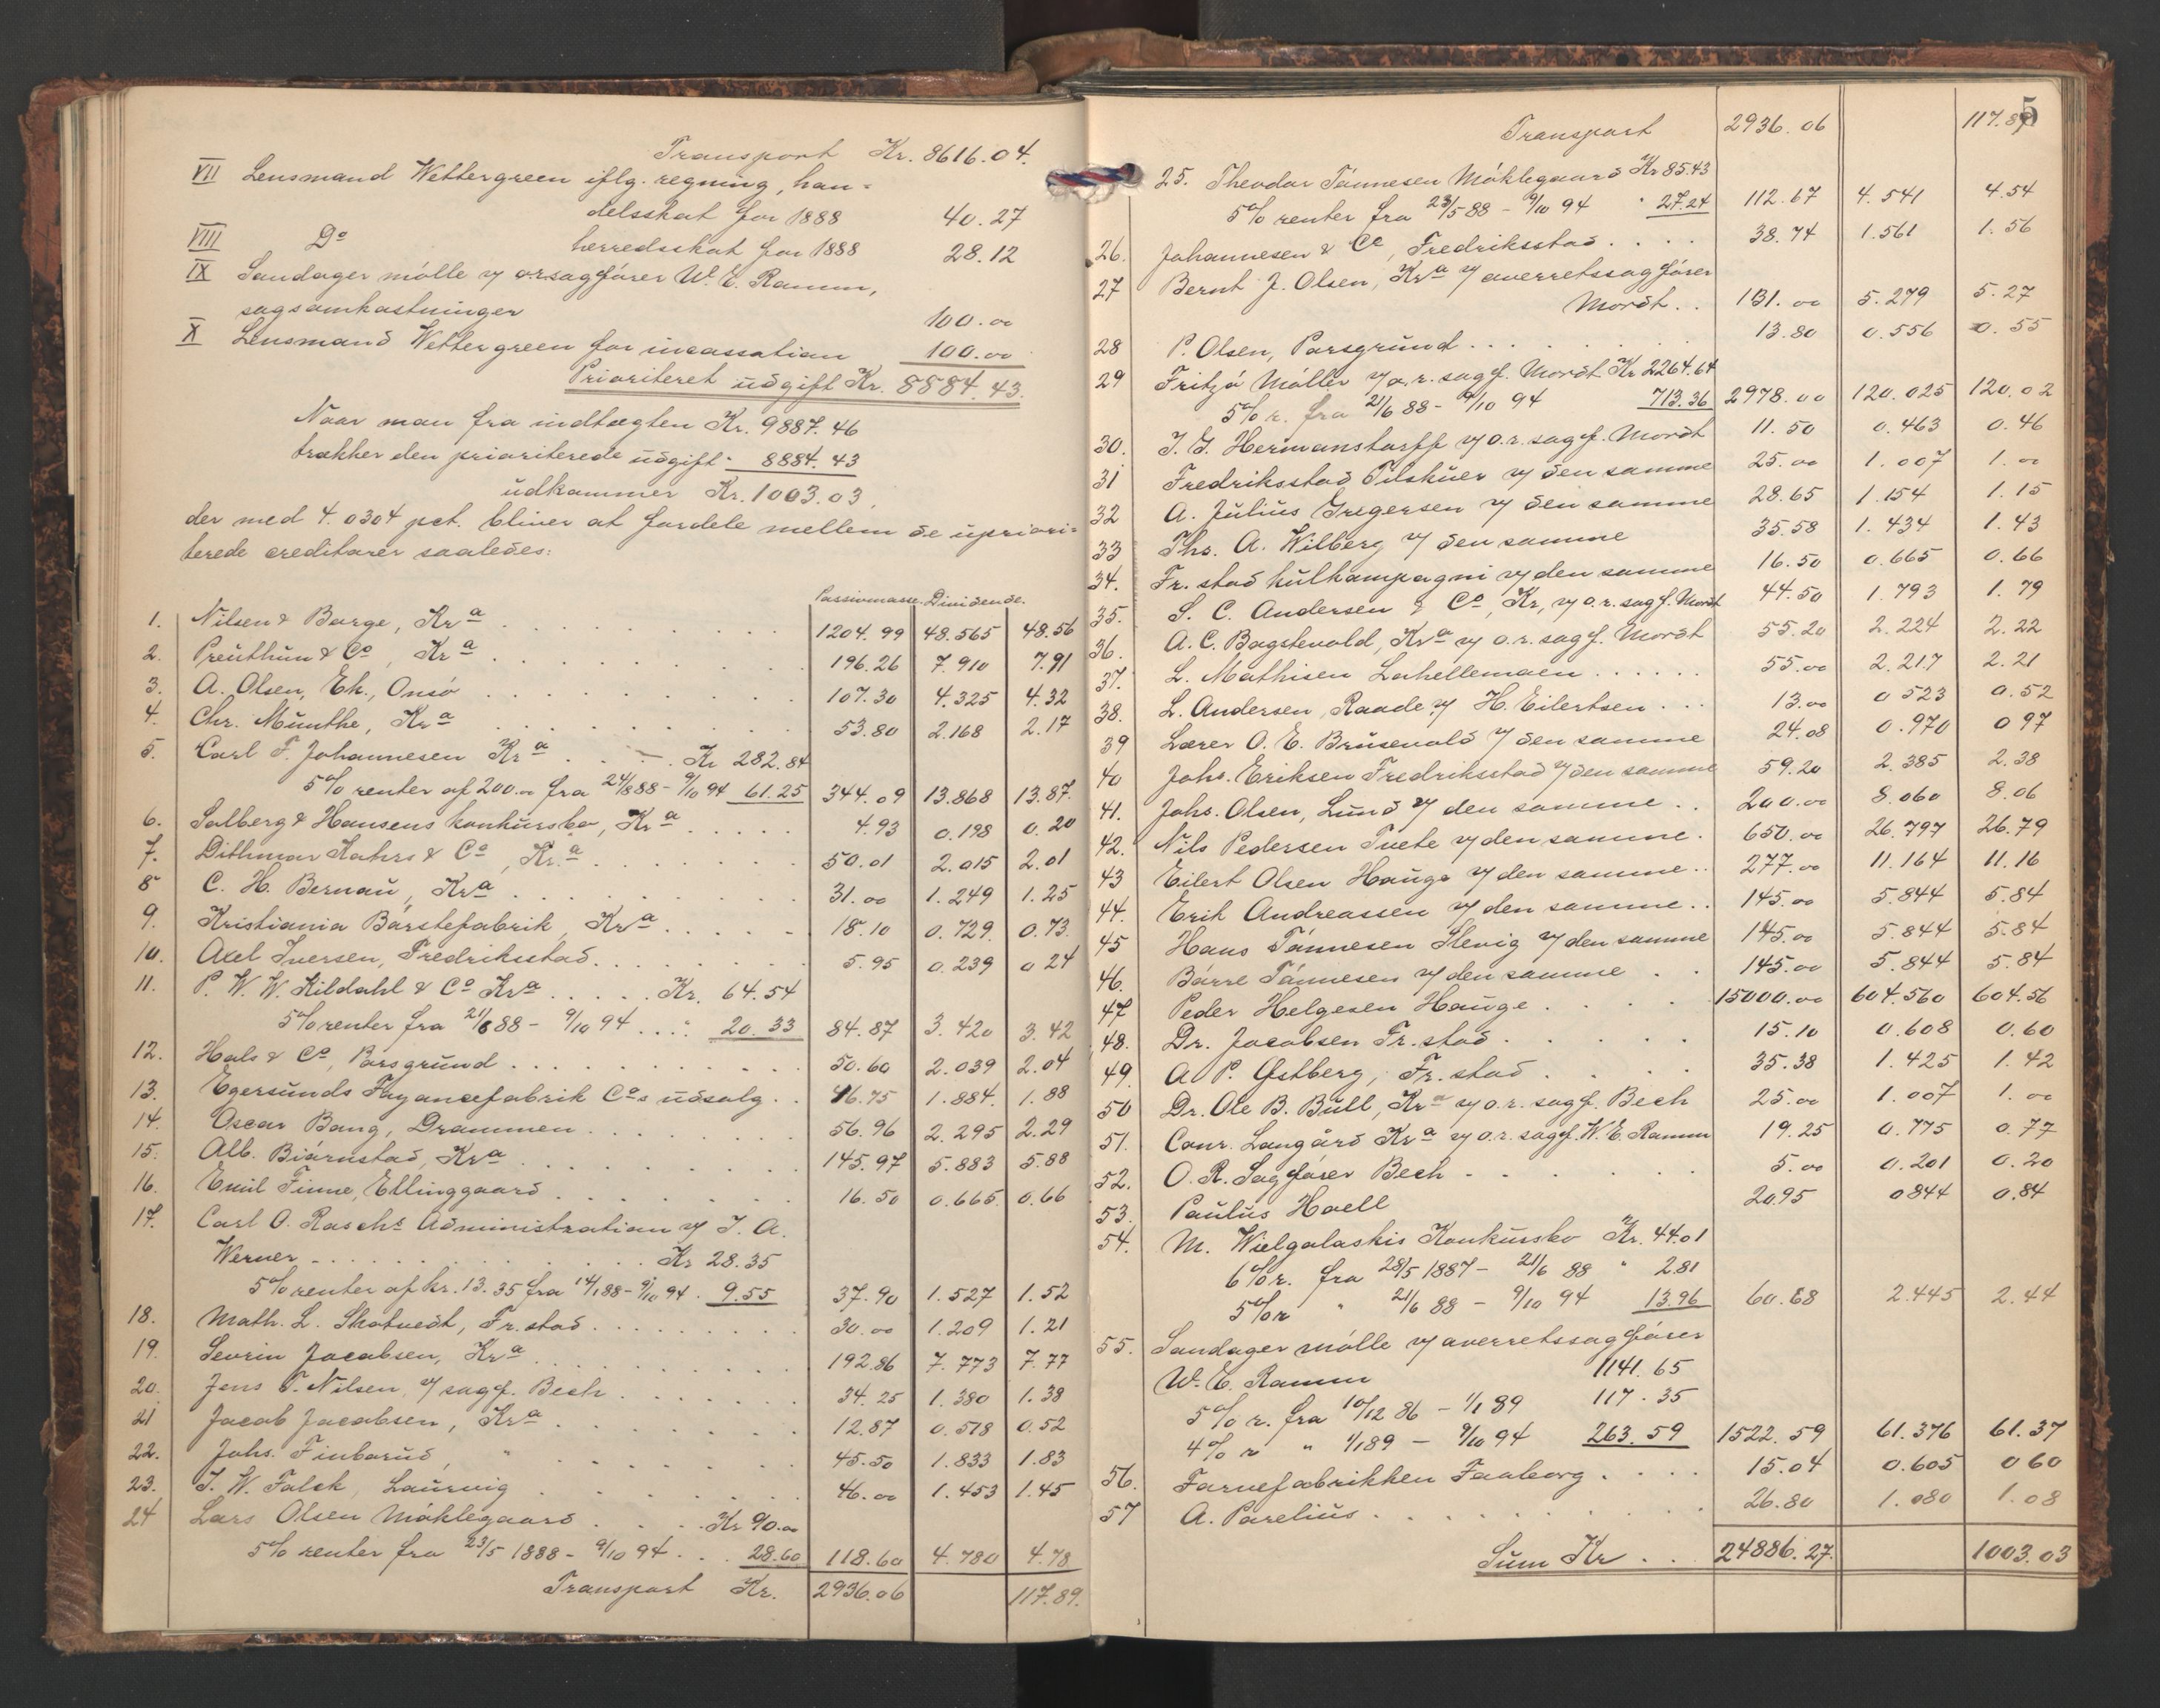 Transport Kr. 8616.04.
VII Lensmand Wettergreen iflg. regning, han=
delsskat for 1888 40.27
VIII Do herredsskat for 1888 28.12
IX Sandager mølle v/ o.r.sagfører W. E. Ramm,
sagsomkostninger 100.00
X Lensmand Wettergreen for incassation 100.00
Prioriteret udgift Kr. 8884.43.
Naar man fra indtægten Kr. 9887.46
trækker den prioriterede udgift " 8884.43
udkommer Kr. 1003.03,
der med 4.0304 pct. bliver at fordele mellem de upriori=
terede creditorer saaledes:
Passivmasse. Dividende.
1. Nilsen & Borge, Kra 1204.99 48.565 48.56
2. Preuthun & Co, Kra 196.26 7.910 7.91
3. A. Olsen, Ek., Onsø 107.30 4.325 4.32
4. Chr. Munthe, Kra 53.80 2.168 2.17
5. Carl F. Johannesen Kra Kr 282.84
5% renter af 200.00 fra 24/8 88 - 9/10 94 61.25 344.09 13.868 13.87
6. Solberg & Hansens konkursbo, Kra 4.93 0.198 0.20
7. Dithmar Kahrs & Co, Kr.a 50.01 2.015 2.01
8 C. H. Bernau, Kra 31.00 1.249 1.25
9. Kristiania Børstefabrik, Kra 18.10 0.729 0.73
10. Axel Iversen, Fredriksstad 5.95 0.239 0 24
11. P. W. W. Kildahl & Co Kra Kr. 64.54
5% renter fra 21/6 88 - 9/10 94 " 20.33 84.87 3.420 3.42
12. Hals & Co, Porsgrund 50.60 2.039 2.04
13. Egersunds Fayancefabrik Cos udsalg 46.75 1.884 1.88
14. Oscar Bang, Drammen 56.96 2.295 2.29
15. Alb. Biørnstad, Kra 145.97 5.883 5.88
16. Emil Finne, Ellinggaard 16.50 0.665 0.66
17. Carl O. Raschs Administration v/ J. A.
Werner Kr 28.35
5% renter af kr. 13.35 fra 14/1 88 - 9/10 94 9.55 37.90 1.527 1.52
18. Math. L. Skotvedt, Fr.stad 30.00 1.209 1.21
19. Sevrin Jacobsen, Kra 192.86 7.773 7.77
20. Jens T. Nilsen v/ sagf. Bech 34.25 1.380 1.38
21 Jacob Jacobsen, Kra 12.87 0.518 0.52
22. Johs. Finborud, " 45.50 1.833 1.83
23. J. W. Falck, Laurvig 46.00 1.453 1.45
24 Lars Olsen Møklegaard Kr 90.00
5% renter fra 23/5 1888 - 9/10 94 28.60 118.60 4.780 4.78
Transport Kr. 2936.06 117.89.
5
Transport 2936.06 117.89
25. Theodor Tønnesen Møklegaard Kr 85.43
5% renter fra 23/5 88 - 9/10 94 " 27.24 112.67 4.541 4.54
26. Johannesen & Co, Fredriksstad 38.74 1.561 1.56
27 Bernt J. Olsen, Kra v/ overretssagfører
Mordt 131.00 5.279 5.27
28 P. Olsen, Porsgrund 13.80 0.556 0.55
29 Fritzø Møller v/ o.r. sagf. Mordt Kr 2264.64
5% r. fra 21/6 88 - 9/10 94 713.36 2978.00 120.025 120.02
30. J. G. Hermanstorff v/ o.r. sagf. Mordt 11.50 0.463 0.46
31 Fredriksstad Tilskuer v/ den samme 25.00 1.007 1.00
32 A. Julius Gregersen v/ den samme 28.65 1.154 1.15
33 Ths. A. Wilberg v/ den samme 35.58 1.434 1.43
34. Fr.stad kulkompagni v/ den samme 16.50 0.665 0.66
35. S. C. Andersen & Co, Kr, v/ o.r. sagf. Mordt 44.50 1.793 1.79
36. A. C. Bogstevold, Kra v/ o.r. sagf. Mordt 55.20 2.224 2.22
37. L. Mathisen Lahellemoen 55.00 2.217 2.21
38. L. Andersen, Raade v/ H. Eilertsen 13.00 0 523 0.52
39 Lærer O. E. Brusevold v/ den samme 24.08 0.970 0 97
40 Johs. Eriksen Fredriksstad v/ den samme 59.20 2.385 2.38
41. Johs. Olsen, Lund v/ den samme 200.00 8.060 8.06
42. Nils Pedersen Tvete v/ den samme 650.00 26.797 26.79
43 Eilert Olsen Hauge v/ den samme 277.00 11.164 11.16
44. Erik Andreassen v/ den samme 145.00 5.844 5.84
45 Hans Tønnesen Slevig v/ den samme 145.00 5.844 5.84
46. Børre Tønnesen v/ den samme 145.00 5.844 5.84
47 Peder Helgesen Hauge 15000.00 604.560 604.56
48. Dr. Jacobsen Fr.stad 15.10 0.608 0.60
49. A. P. Østberg, Fr.stad 35.38 1.425 1.42
50 Dr. Ole B. Bull, Kra v/ o.r. sagf. Bech 25.00 1.007 1.00
51. Conr. Langård Kra v/ o.r. sagf. W. E. Ramm 19.25 0.775 0.77
52. O. R. Sagfører Bech 5.00 0.201 0.20
53. Paulus Hoell 20.95 0844 0.84
54. M. Wielgolaskis Konkursbo Kr. 44.01
6% r. fra 28/5 1887 - 21/6 88 " 2.81
5% r " 21/6 88 - 9/10 94 13.96 60.68 2.445 2.44
55. Sandager mølle v/ overretssagfører
W. E. Ramm 1141.65
5% r. fra 10/12 86 - 1/1 89 117.35
4% r " 1/1 89 - 9/10 94 263.59 1522.59 61.376 61.37
56. Farvefabrikken Faaborg 15.04 0.605 0 60
57 A. Parelius 26.80 1.080 1.08
Sum Kr 24886.27. 1003.03